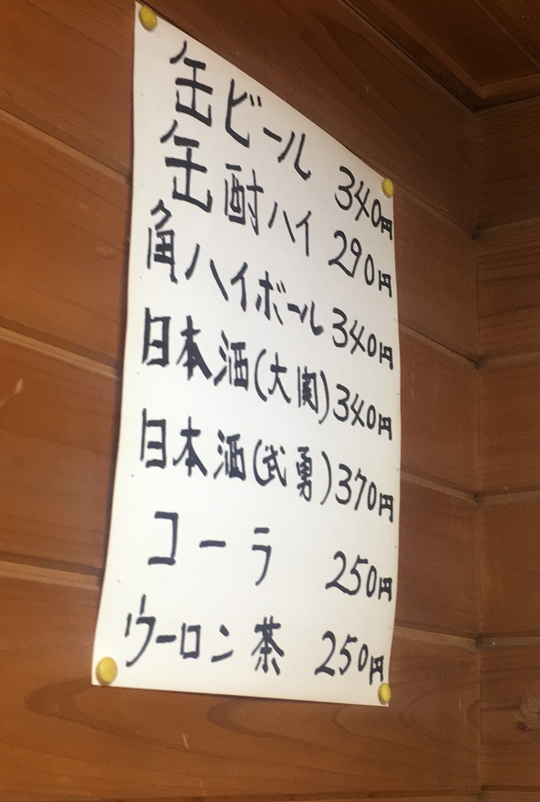 缶ビール 340円
缶酎ハイ 290円
角ハイボール 340円
日本酒(大関) 340円
日本酒(武勇) 370円
コーラ 250円
ウーロン茶 250円